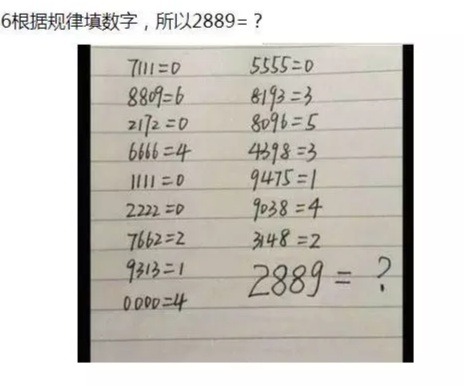 6根据规律填数字，所以2889=？
7111=0
8809=6
2172=0
6666=4
1111=0
2222=0
7662=2
9313=1
0000=4
5555=0
8193=3
8096=5
4398=3
9475=1
9038=4
3148=2
2889=?